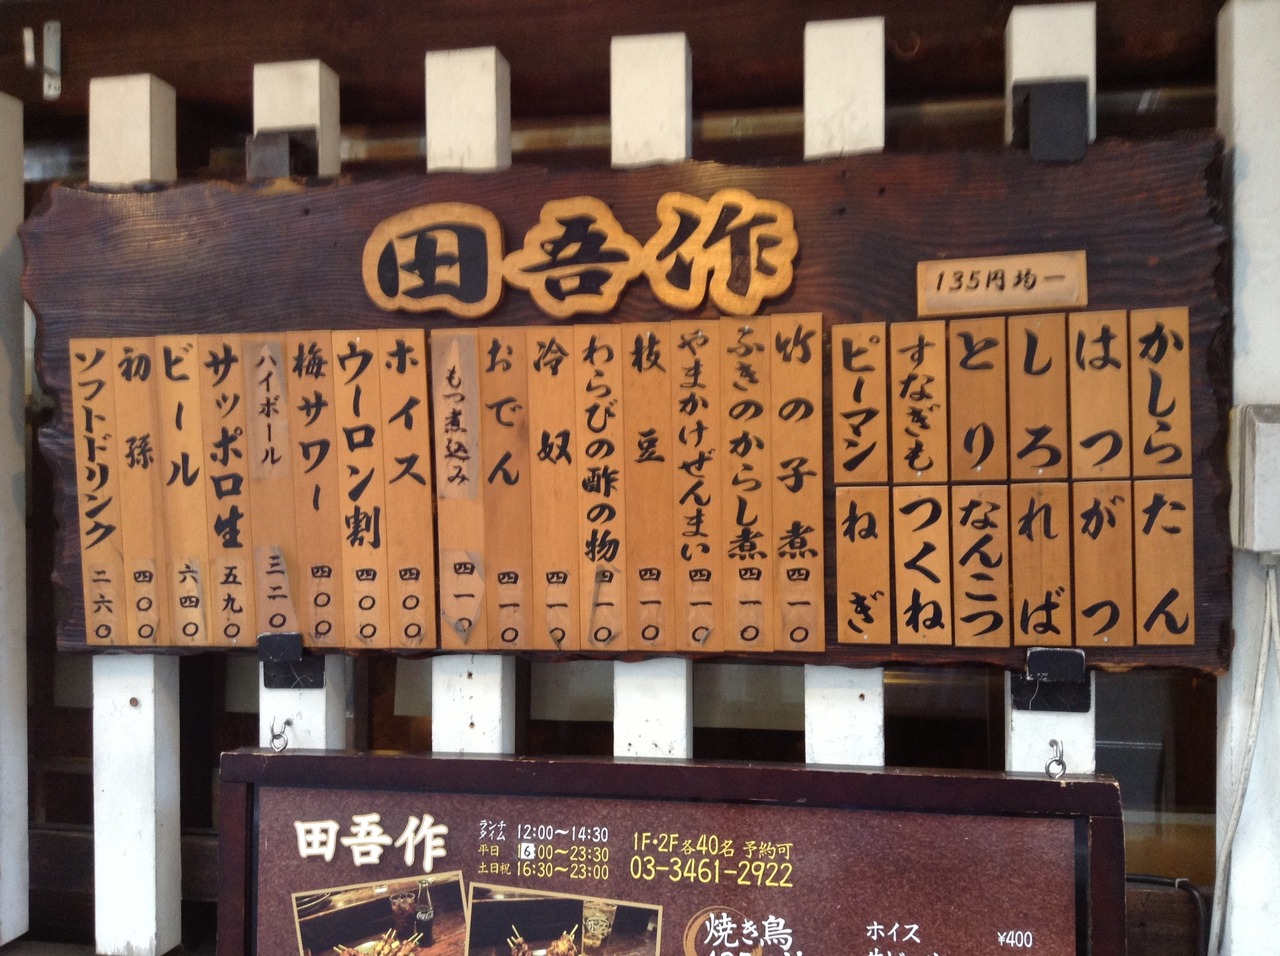 田吾作
135円均一
かしら
はつ
しろ
とり
すなぎも
ピーマン
たん
がつ
れば
なんこつ
つくね
ねぎ
竹の子煮 四一〇
ふきのからし煮 四一〇
やまかけぜんまい 四一〇
枝豆 四一〇
わらびの酢の物 四一〇
冷奴 四一〇
おでん 四一〇
もつ煮込み 四一〇
ホイス 四〇〇
ウーロン割 四〇〇
梅サワー 四〇〇
ハイボール 三二〇
サッポロ生 五九〇
ビール 六四〇
初孫 四〇〇
ソフトドリンク 二六〇
田吾作
ランチタイム 12:00〜14:30
平日 16:00〜23:30
土日祝 16:30〜23:00
1F・2F各40名 予約可
03-3461-2922
焼き鳥
ホイス ¥400